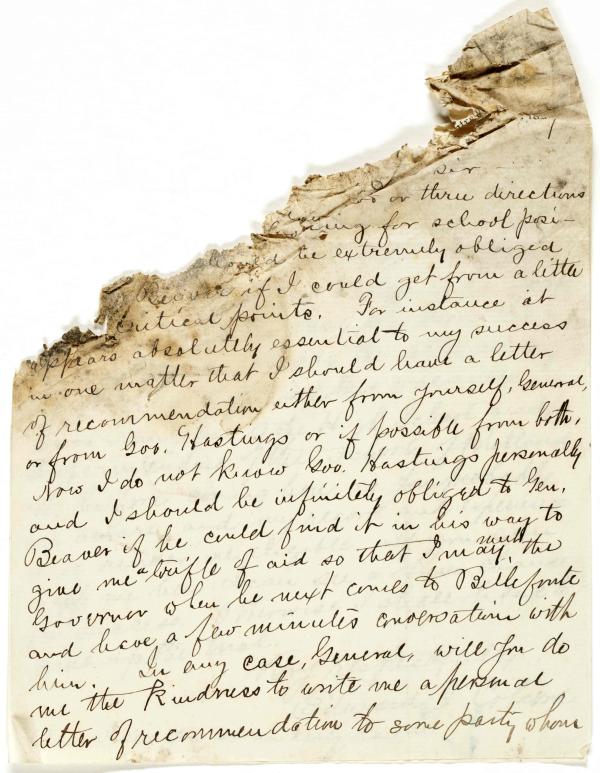 sir
or three directions
for school posi-
be extremely obliged
Beaver if I could get from a little
critical points. For instance at
appears absolutely essential to my success
in one matter that I should have a letter
of recommendation either from yourself, General,
or from Gov. Hastings or if possible from both.
Now I do not know Gov. Hastings personally
and I should be infinitely obliged to Gen.
Beaver if he could find it in his way to
give me a trifle of aid so that I may meet the
Governor when he next comes to Bellefonte
and have a few minutes conversation with
him. In any case, General, will you do
me the kindness to write me a personal
letter of recommendation to some party whom